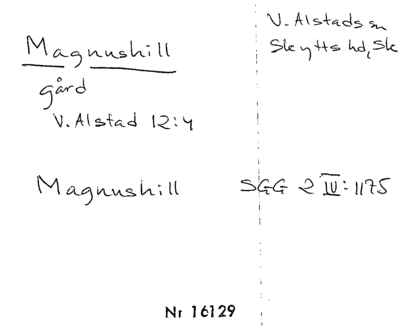 Magnushill
V. Alstads sn
Skytts hd, Sk
gård
V. Alstad 12:4
Magnushill SGG 2 IV: 1175
Nr 16129